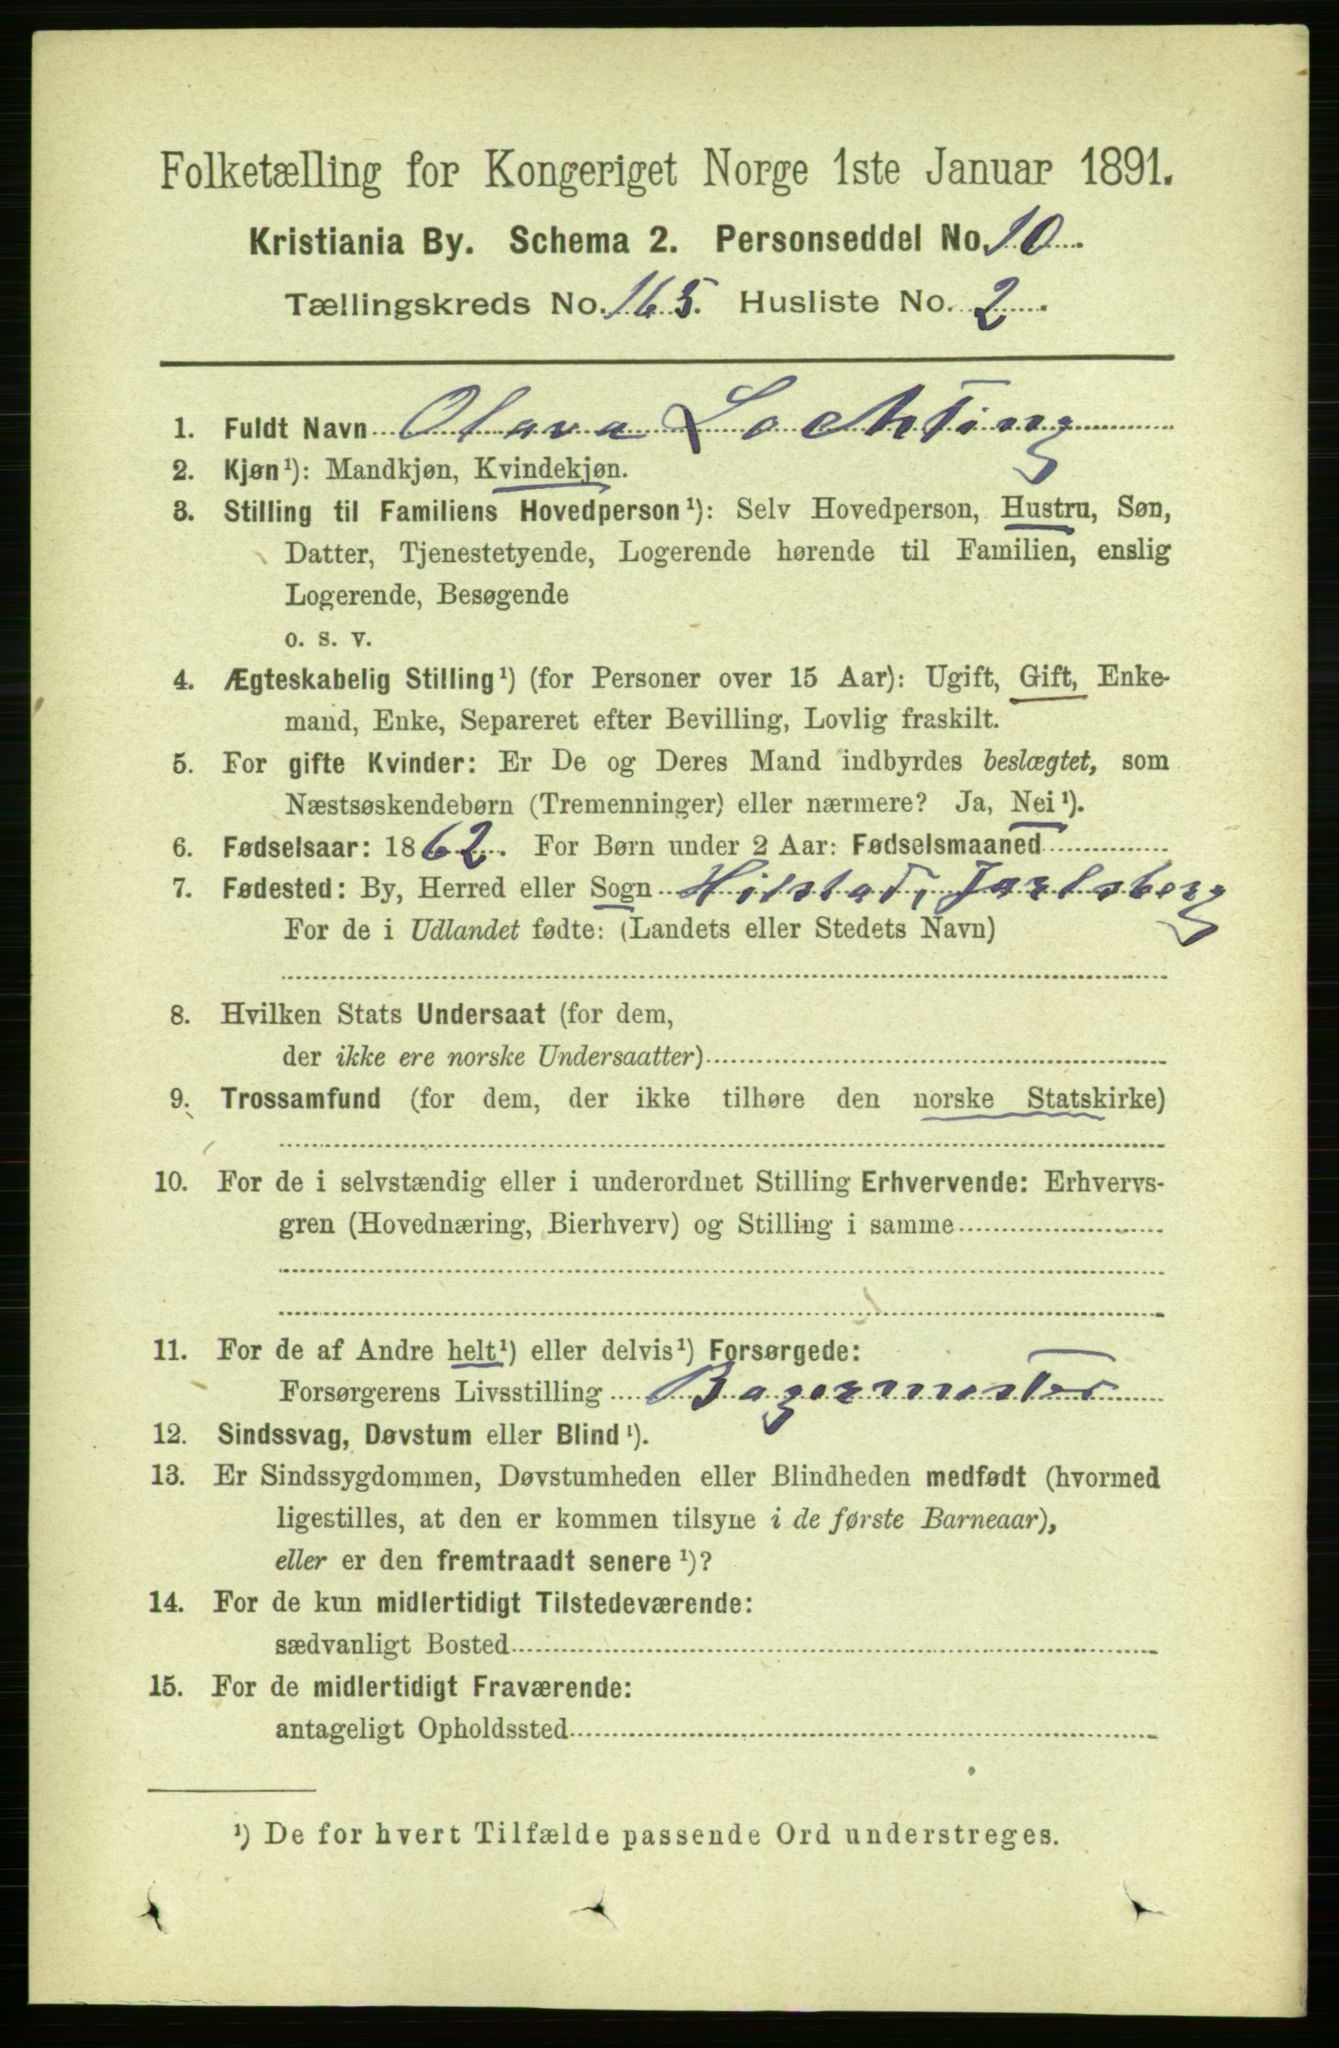 Folketælling for Kongeriget Norge 1ste Januar 1891.
Kristiania By. Schema 2. Personseddel No. 10.
Tællingskreds No. 165. Husliste No. 2.
1. Fuldt Navn Olava Lochting
2. Kjøn¹): Mandkjøn, Kvindekjøn.
3. Stilling til Familiens Hovedperson¹): Selv Hovedperson, Hustru, Søn,
Datter, Tjenestetyende, Logerende hørende til Familien, enslig
Logerende, Besøgende
o. s. v.
4. Ægteskabelig Stilling¹) (for Personer over 15 Aar): Ugift, Gift, Enke-
mand, Enke, Separeret efter Bevilling, Lovlig fraskilt.
5. For gifte Kvinder: Er De og Deres Mand indbyrdes beslægtet, som
Næstsøskendebørn (Tremenninger) eller nærmere? Ja, Nei¹).
6. Fødselsaar: 1862. For Børn under 2 Aar: Fødselsmaaned
7. Fødested: By, Herred eller Sogn Hilstad, Jarlsberg
For de i Udlandet fødte: (Landets eller Stedets Navn)
8. Hvilken Stats Undersaat (for dem,
der ikke ere norske Undersaatter)
9. Trossamfund (for dem, der ikke tilhøre den norske Statskirke)
10. For de i selvstændig eller i underordnet Stilling Erhvervende: Erhvervs-
gren (Hovednæring, Bierhverv) og Stilling i samme
11. For de af Andre helt¹) eller delvis¹) Forsørgede:
Forsørgerens Livsstilling Bagermester
12. Sindssvag, Døvstum eller Blind¹).
13. Er Sindssygdommen, Døvstumheden eller Blindheden medfødt (hvormed
ligestilles, at den er kommen tilsyne i de første Barneaar),
eller er den fremtraadt senere¹)?
14. For de kun midlertidigt Tilstedeværende:
sædvanligt Bosted
15. For de midlertidigt Fraværende:
antageligt Opholdssted
¹) De for hvert Tilfælde passende Ord understreges.